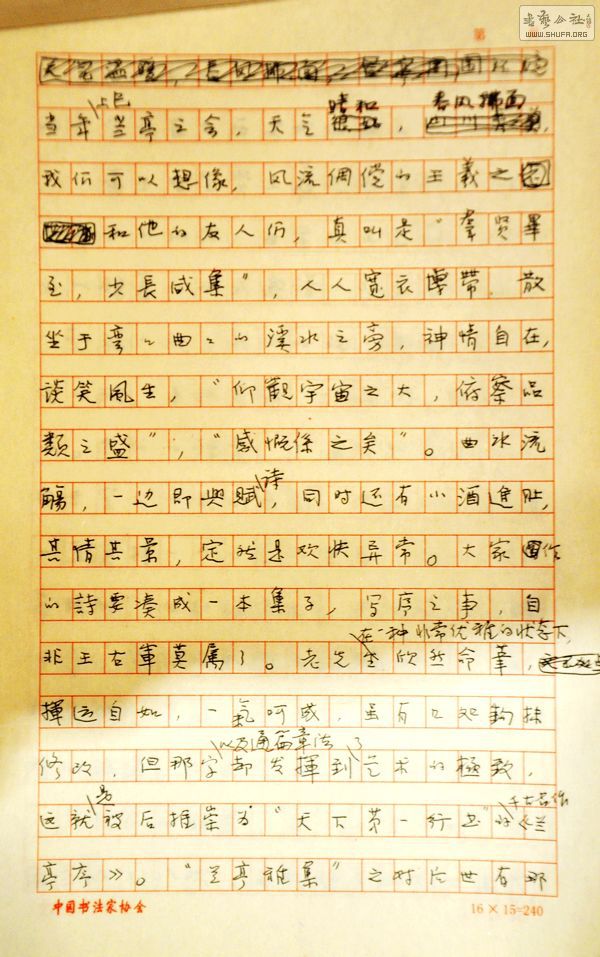 书艺公社
WWW.SHUFA.ORG
第
上巳 晴和 春风拂面
当年兰亭之会，天气，
我们可以想像，风流倜傥的王羲之
和他的友人们，真叫是“羣贤畢
至，少長咸集”，人人寬衣博帶，散
坐于弯〻曲〻的溪水之旁，神情自在，
谈笑風生，“仰觀宇宙之大，俯察品
類之盛”，“感慨係之矣”。曲水流
诗
觴，一边即興賦，同时还有小酒進肚，
其情其景，定然是欢快异常。大家作
的詩要凑成一本集子，写序之事，自
在一种非常优雅的状态下，
非王右軍莫属了。老先生欣然命筆，
揮运自如，一氣呵成，虽有几处鈎抹
以及通篇章法 了
修改，但那字却发揮到艺术的極致，
是 千古名作
这就被后推崇为“天下第一行书”的《兰
亭序》。“兰亭雅集”之对后世有那
中国书法家协会 16×15=240